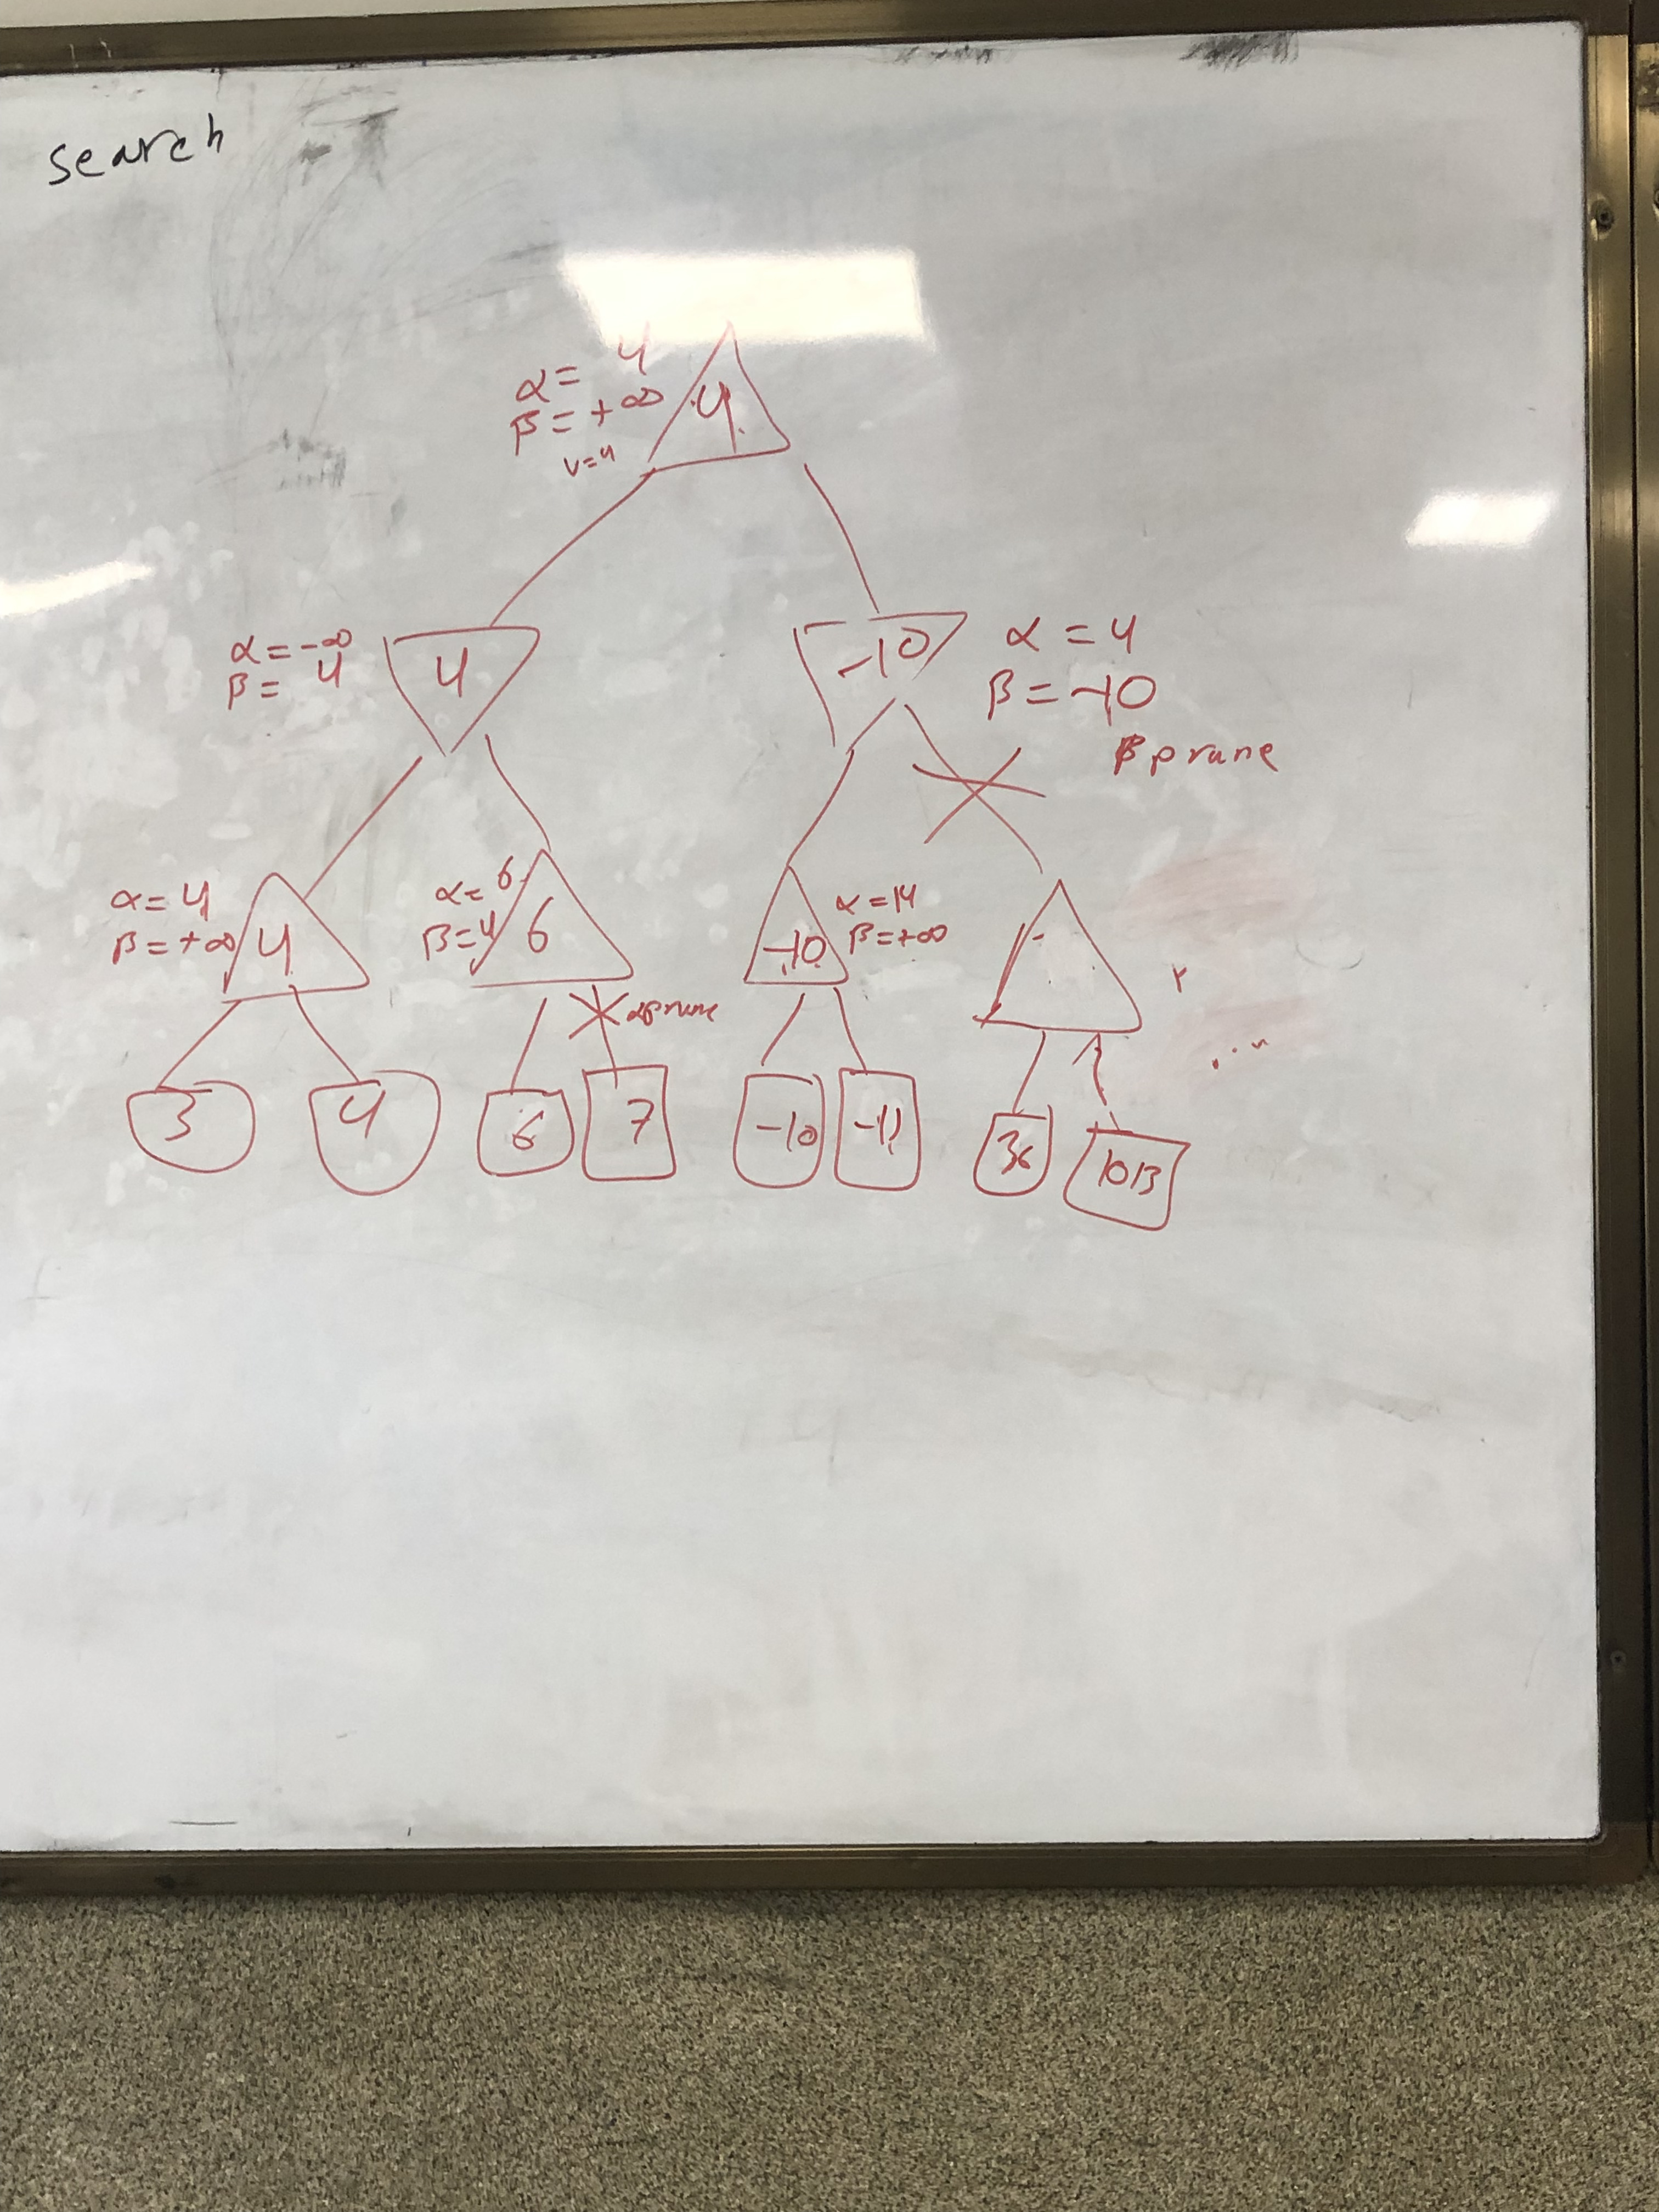 search
α = 4
β = +∞
v=4
4
α = -∞
β = 4
4
-10
α = 4
β = -10
β prune
α = 4
β = +∞
4
α = 6
β = 4
6
α prune
-10
α = 14
β = +∞
3
4
6
7
-10
-11
36
1013
...